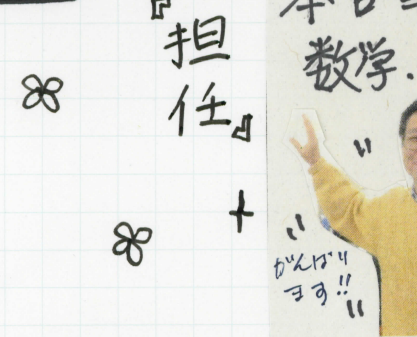 『担任』
数学.
がんばり
ます!!